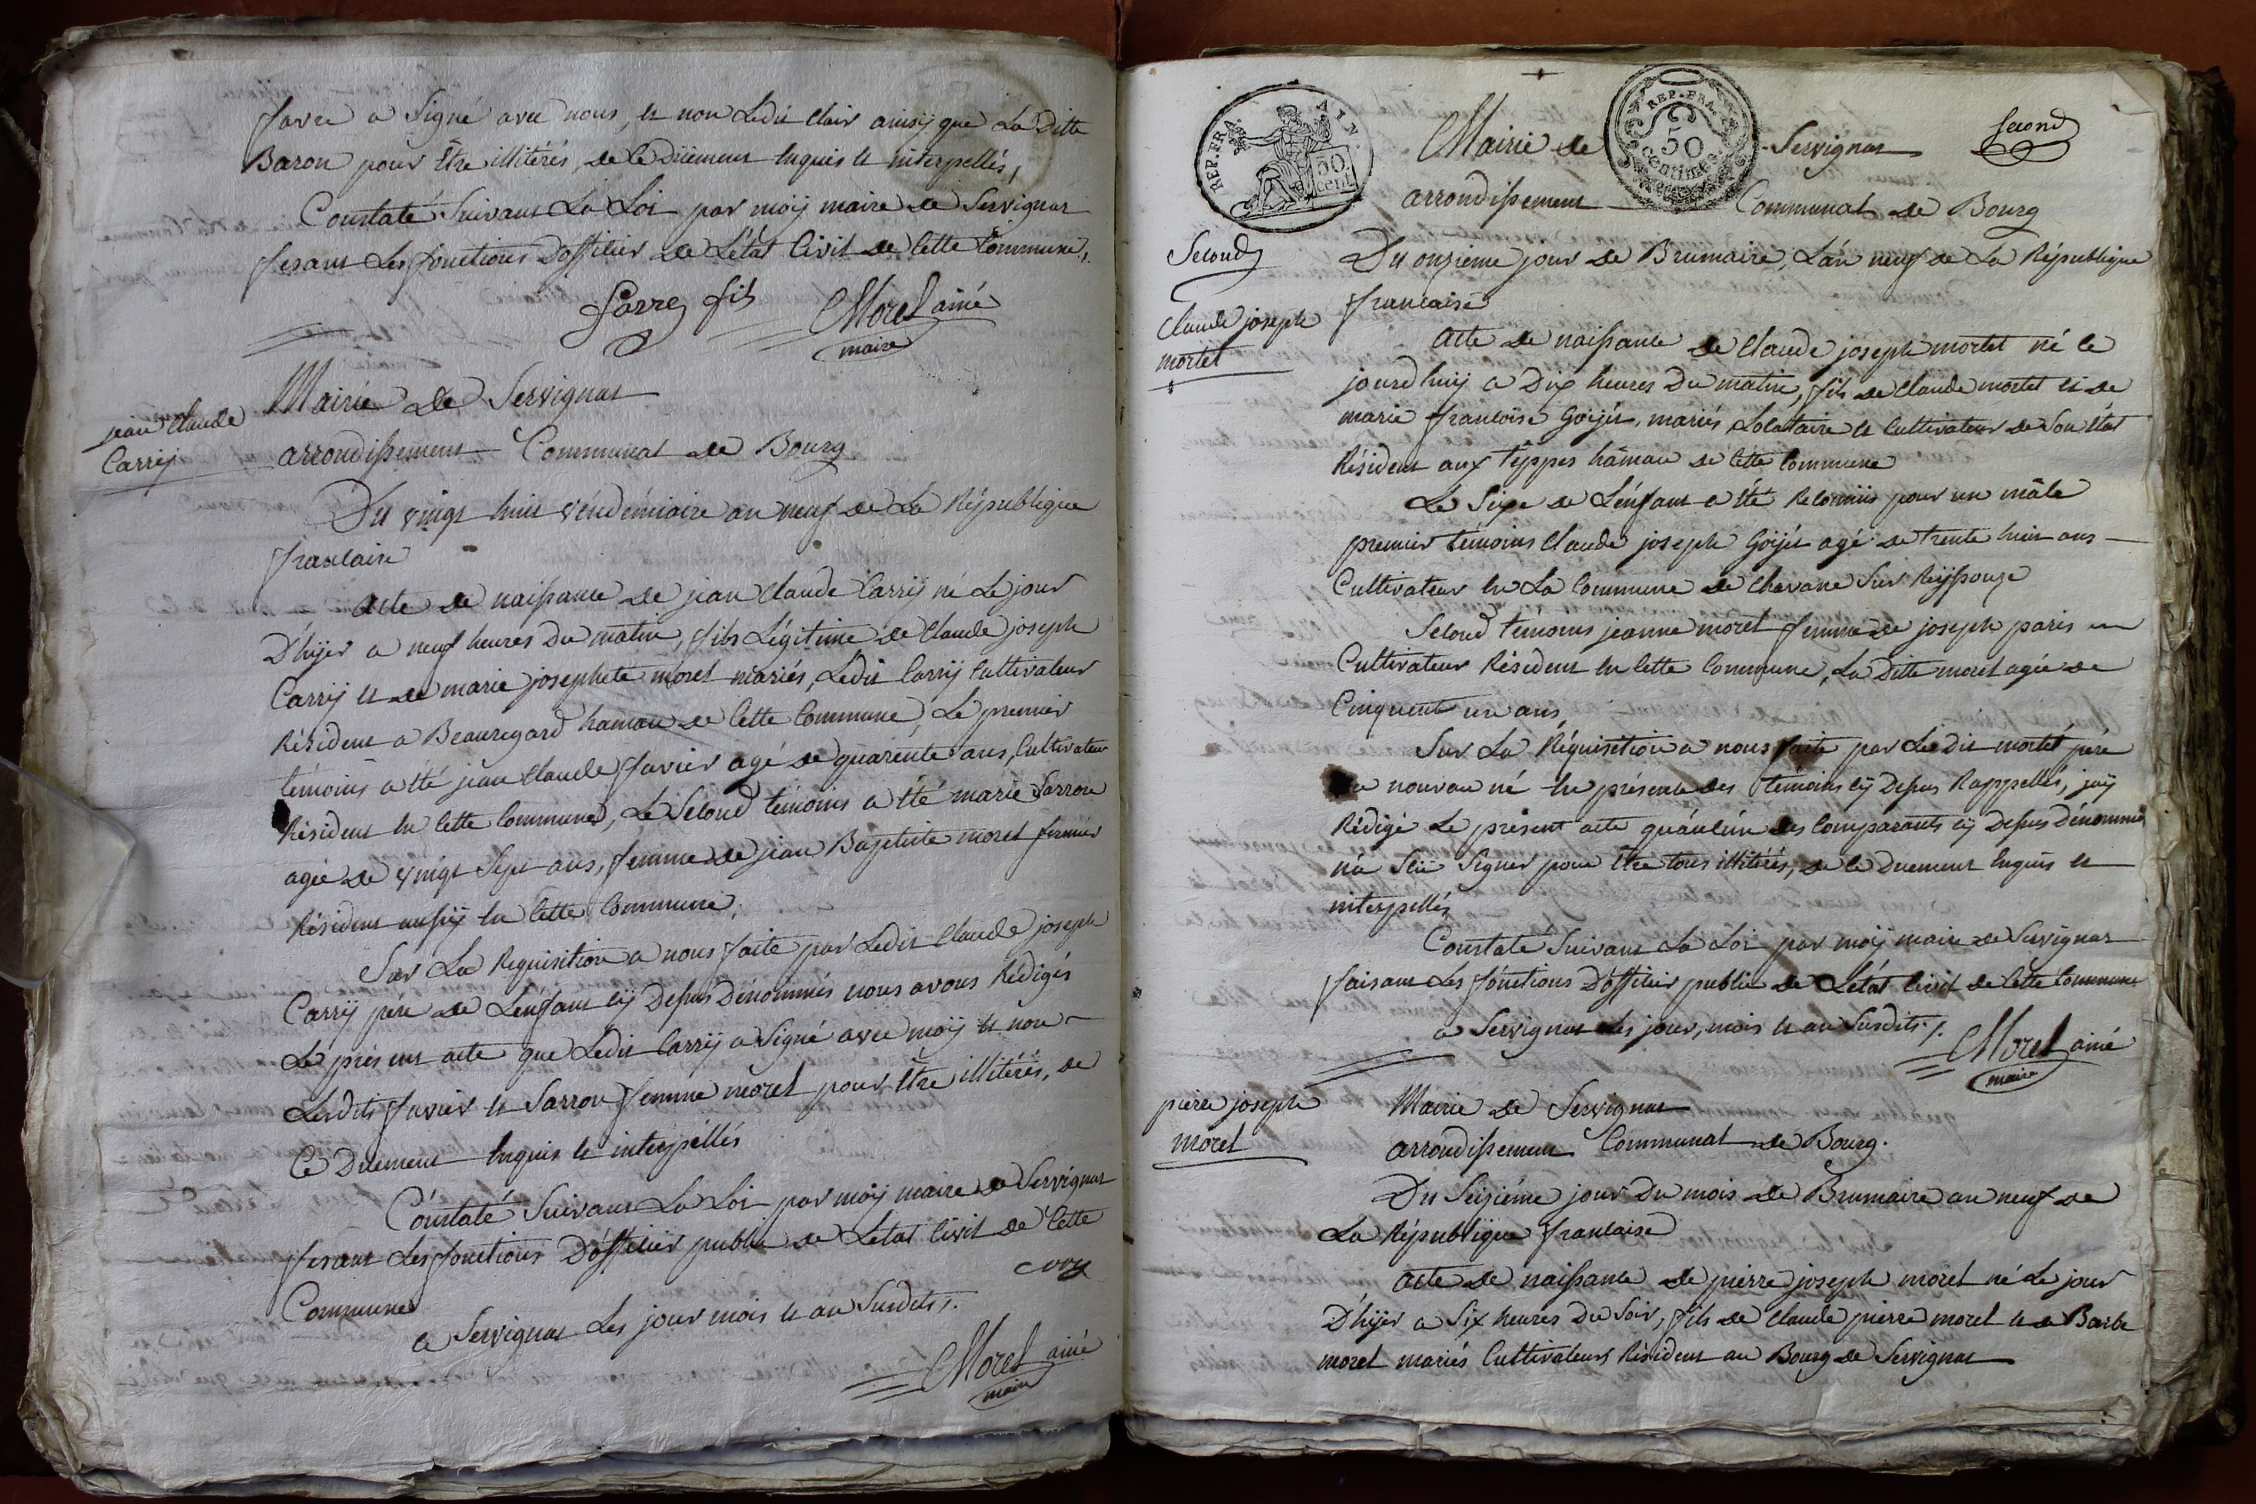 favre a Signé avec nous, et non Ledit Clair ainsÿ que La Ditte
Baron pour être illitérés, de Ce Düement Enquis et interpellés,
Constaté Suivant La Loi par moÿ maire de Servignat
fesant Les fonctions D'officier de L'état Civil de Cette Commune,.
favre fils Morel ainé
maire
jean Claude
Carrÿ
Mairie de Servignat
arrondissement Communal de Bourg
Du vingt huit vendémiaire an neuf de La République
francaise
Acte de naissance de jean Claude Carrÿ né Le jour
D'hÿer a neuf heures Du matin, fils Légitime de Claude joseph
Carrÿ et de marie josephete morel mariés, Ledit Carrÿ Cultivateur
Résident a Beauregard hamau de Cette Commune, Le premier
témoins a été jean Claude favier agé de quarente ans, Cultivateur
Résident En Cette Commune, Le Second témoins a été marie Sarron
agée de vingt Sept ans, femme de jean Baptiste morel fermier
Résident aussÿ En Cette Commune,
Sur La Requisition a nous faite par Ledit Claude joseph
Carrÿ pére de L'enfant cÿ Dessus Dénommés nous avons Rédigés
Le présent acte que Ledit Carrÿ a Signé avec moÿ et non
Lesdits favier et Sarron femme morel pour être illitérés, de
Ce Duement Enquis et interpéllés
Constaté Suivant La Loi par moÿ maire de Servignat
fesant Les fonctions D'officier public de L'état Civil de Cette
Commune
a Servignat Les jour mois et an Susdits,.
Morel ainé
maire
REP. FRA.
50
cent.
REP. FRA.
50
centimes
Mairie de Servignat
Second
arrondissement Communal de Bourg
Second
Du onzieme jour de Brumaire, L'an neuf de La République
francaise
Claude joseph
mortet
Acte de naissance de Claude joseph mortet né Ce
jourd'huÿ a Dix heures Du matin, fils de Claude mortet et de
marie francoise Goÿet, mariés, Locataire et Cultivateur de Son état
Résident aux teÿppes hâmau de Cette Commune
Le Sexe de L'enfant a été Reconnüs pour un mâle
premier témoins Claude joseph Goÿet agé de trente huit ans
Cultivateur En La Commune de Chavane Sur Reÿssouze
Second témoins jeanne morel femme de joseph paris
Cultivateur Résident En Cette Commune, La Ditte morel agée de
Cinquent un ans
Sur La Réquisition a nous faite par Ledit mortet pére
Du nouvau né En présence Des témoins cÿ Dessus Rappellés, jaÿ
Rédigé Le présent acte qu'aucün des Comparants cÿ Dessus Dénommés
n'a Scü Signer pour être tous illitérés, de Ce Duement Enquis et
interpellés
Constaté Suivant La Loi par moÿ maire de Servignat
faisant Les fonctions D'officier public de L'état Civil de Cette Commune
a Servignat Les jour, mois et an Susdits,.
Morel ainé
maire
pierre joseph
morel
Mairie de Servignat
arrondissement Communal de Bourg.
Du Seiziéme jour Du mois de Brumaire an neuf de
La République francaise
Acte de naissance de pierre joseph morel né Le jour
D'hÿer a Six heures Du Soir, fils de Claude pierre morel et de Barbe
morel mariés Cultivateurs Résident au Bourg de Servignat